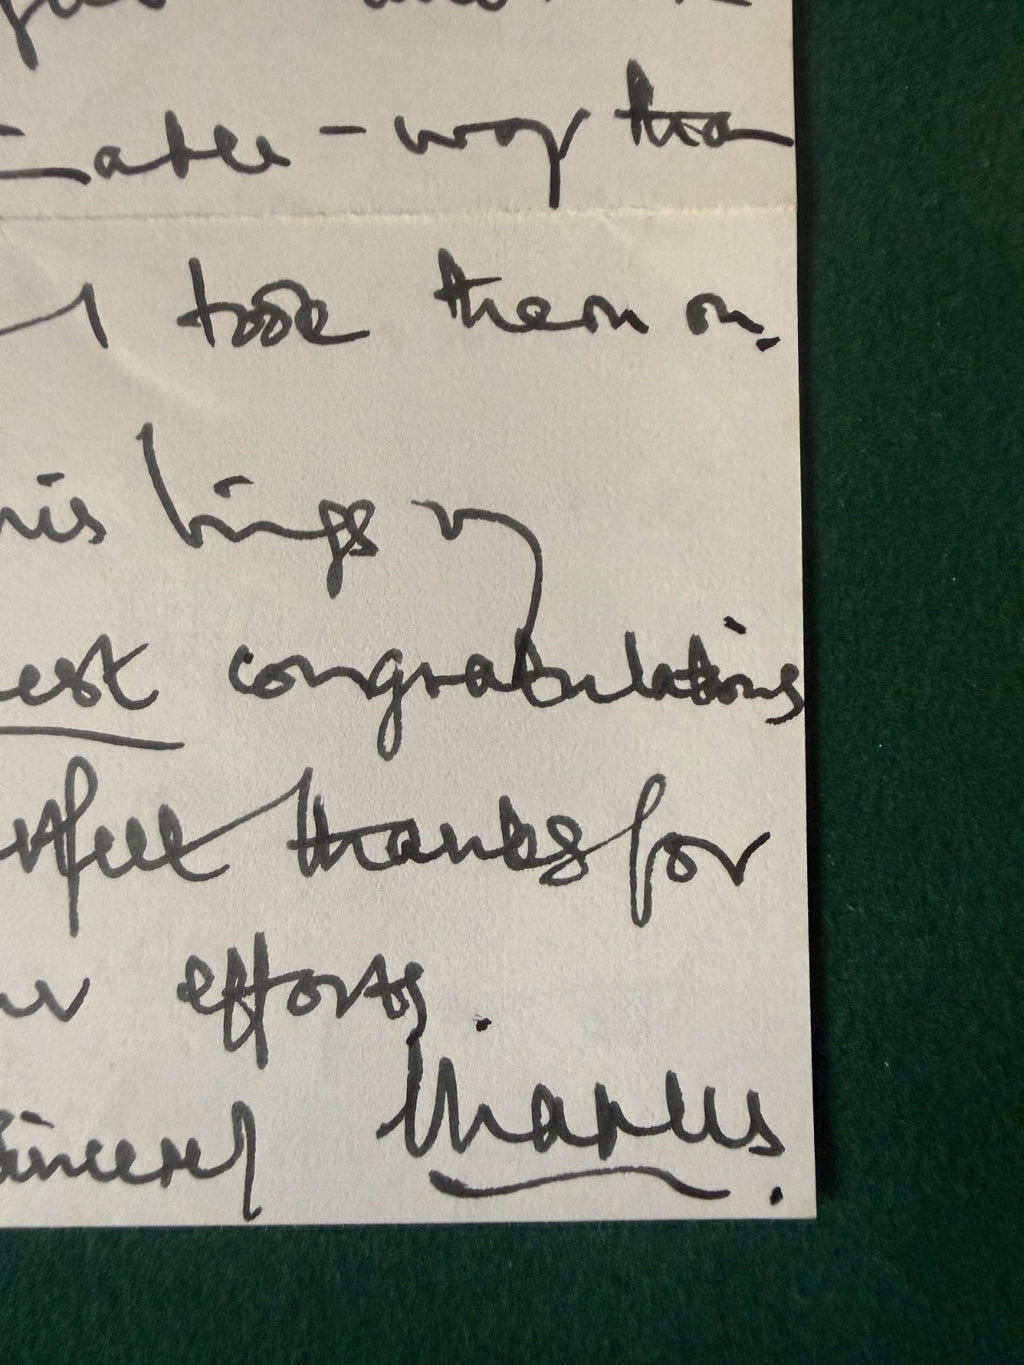 -able-way than
I took them on.
his brings my
est congratulations
thanks for
efforts.
Sincerely Charles.